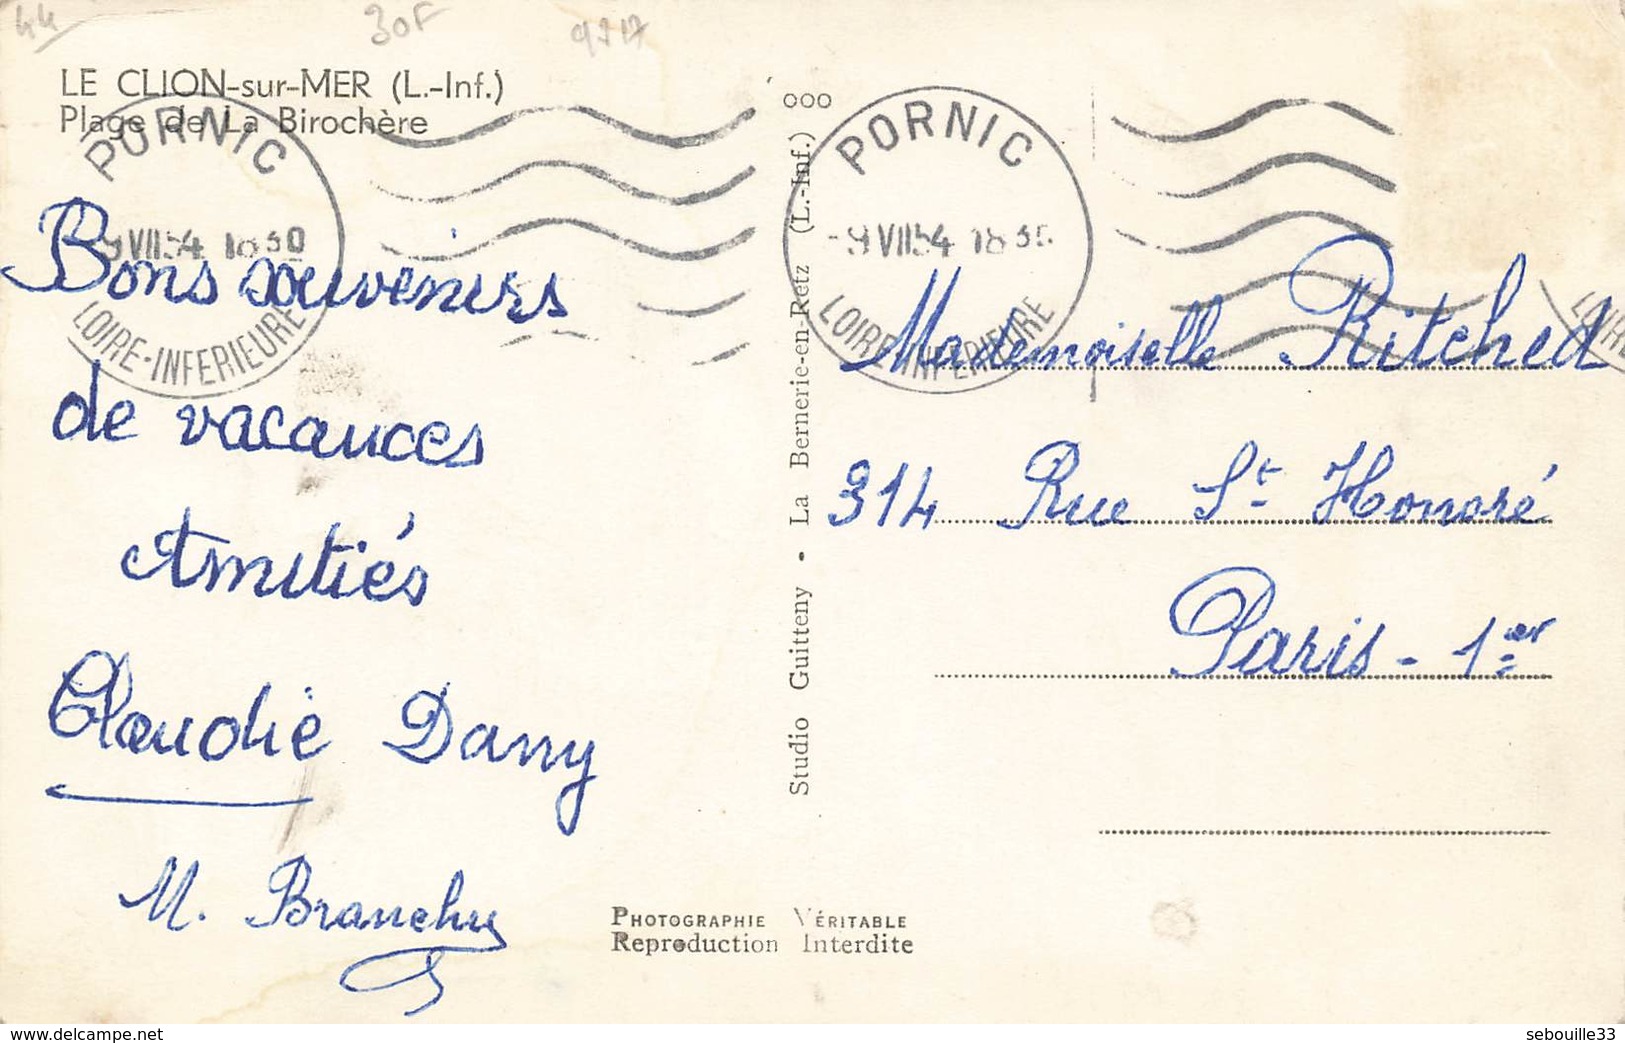 44
30F
LE CLION-sur-MER (L.-Inf.)
Plage de La Birochère
PORNIC
9 VII 54 18 30
LOIRE-INFERIEURE
Bons souvenirs
de vacances
Amitiés
Claudie Dany
M. Branchu
Studio Guitteny • La Bernerie-en-Retz (L.-Inf.) 000
PHOTOGRAPHIE VÉRITABLE
Reproduction Interdite
PORNIC
-9 VII 54 18 3
LOIRE INFERIEURE
Mademoiselle Ritched
314 Rue St Honoré
Paris - 1er
www.delcampe.net
sebouille33